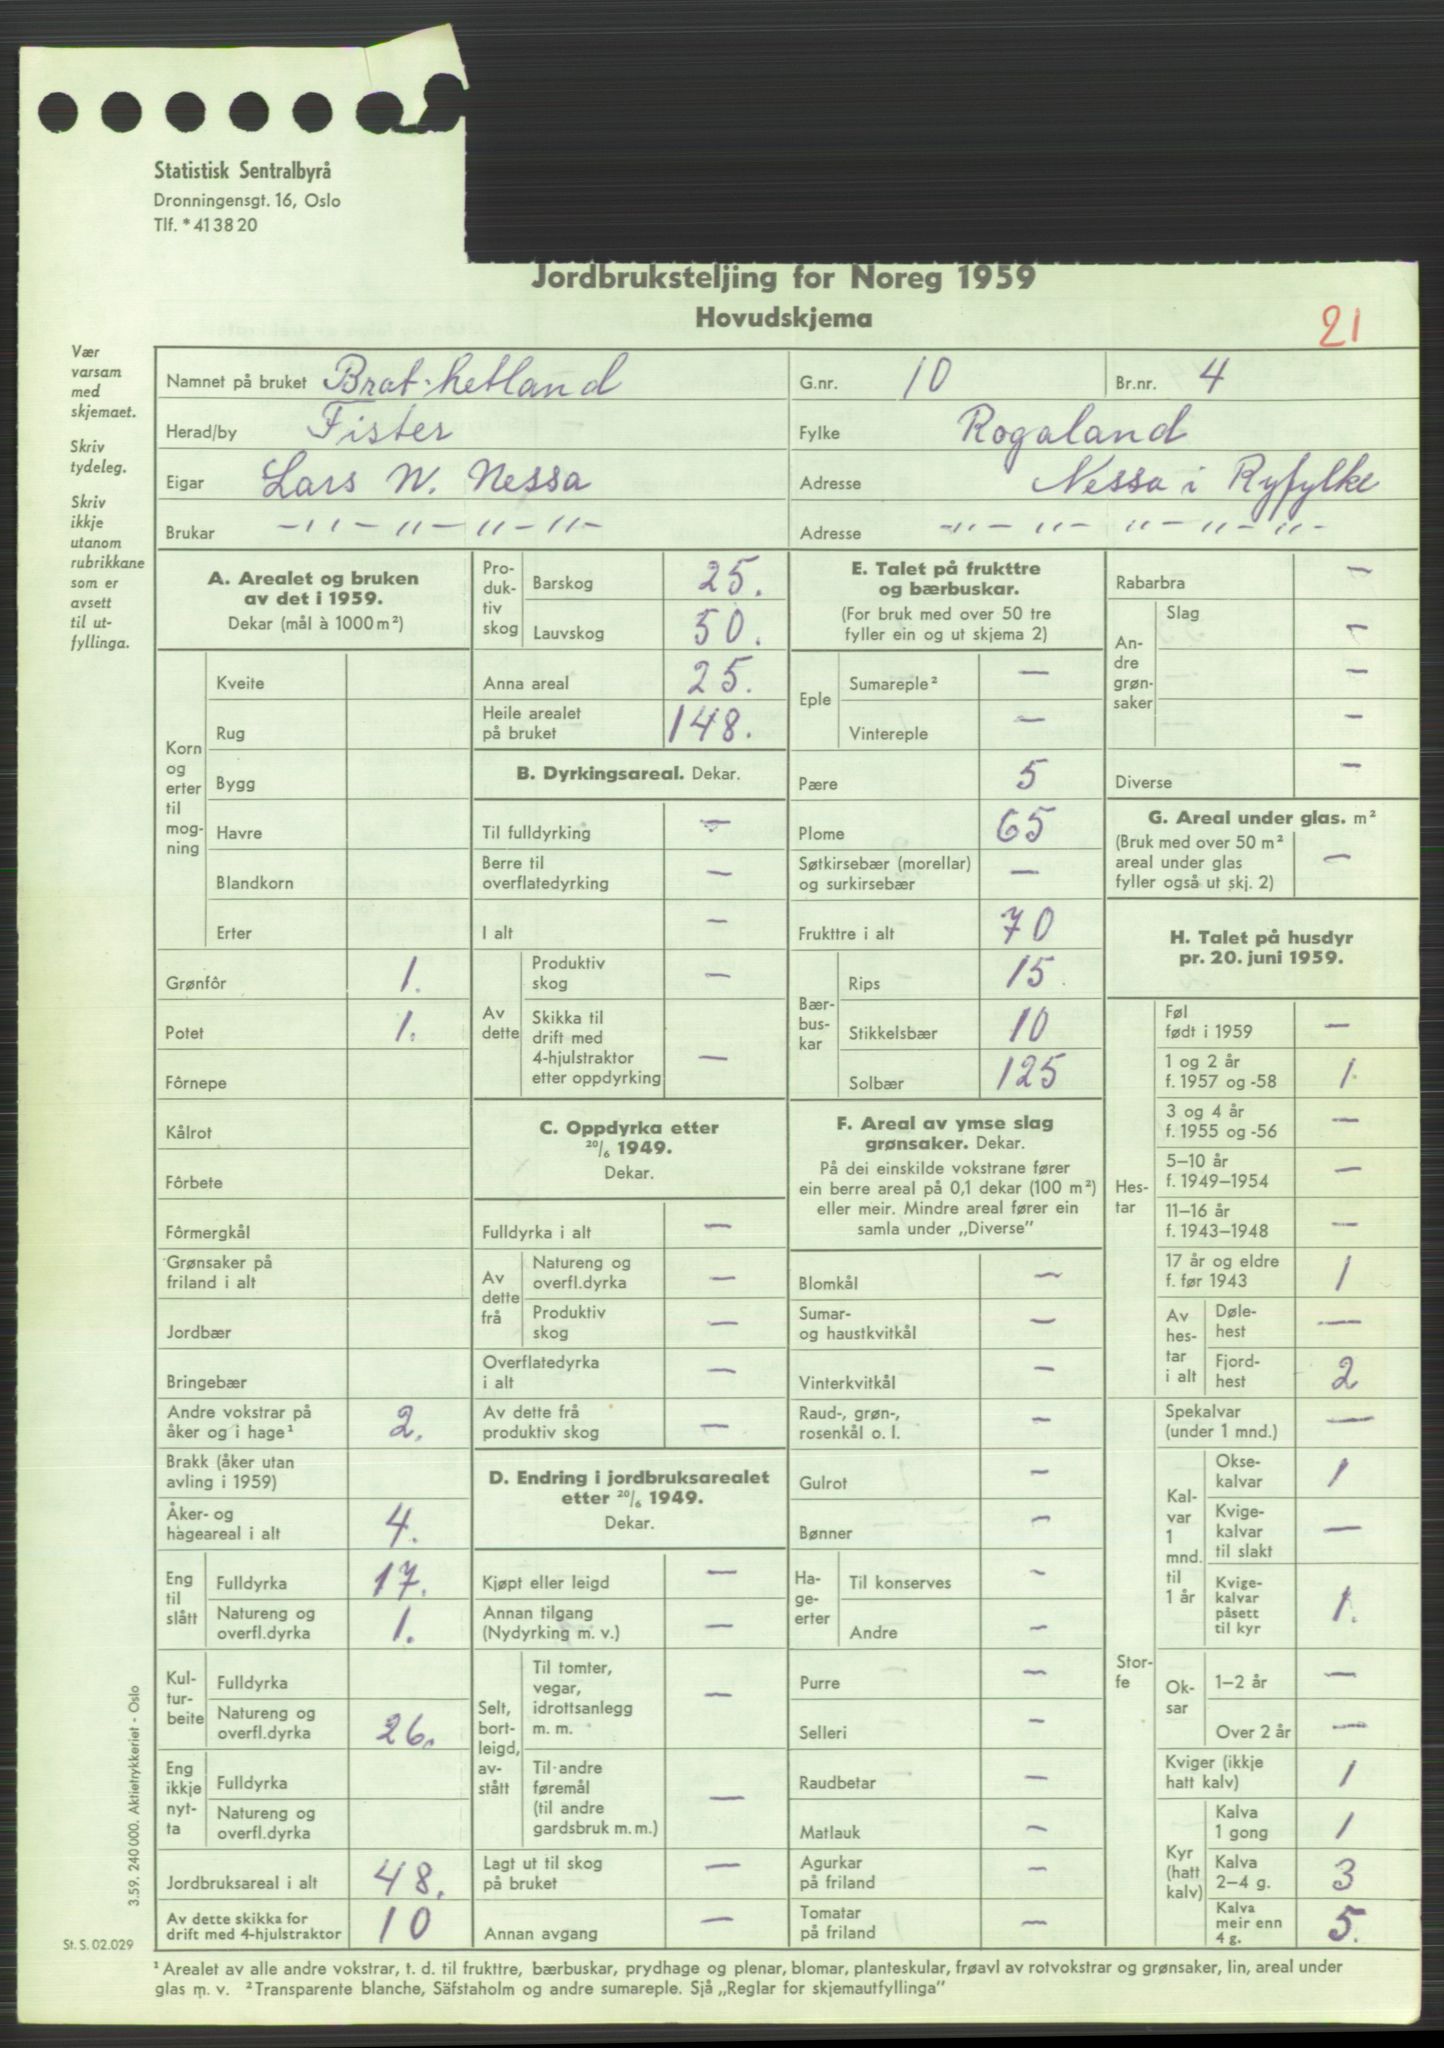 Statistisk Sentralbyrå
Dronningensgt. 16, Oslo
Tlf. * 41 38 20
Jordbruksteljing for Noreg 1959
Hovudskjema
21
Vær
varsam
med
skjemaet.
Skriv
tydeleg.
Skriv
ikkje
utanom
rubrikkane
som er
avsett
til ut-
fyllinga.
Namnet på bruket Brat-hetland G.nr. 10 Br.nr. 4
Herad/by Fister Fylke Rogaland
Eigar Lars W. Nessa Adresse Nessa i Ryfylke
Brukar –"–"–"–"– Adresse –"–"–"–"–"–
A. Arealet og bruken
av det i 1959.
Dekar (mål à 1000 m²)
Korn
og
erter
til
mog-
ning
Kveite
Rug
Bygg
Havre
Blandkorn
Erter
Grønfôr 1.
Potet 1.
Fôrnepe
Kålrot
Fôrbete
Fôrmergkål
Grønsaker på
friland i alt
Jordbær
Bringebær
Andre vokstrar på
åker og i hage¹ 2.
Brakk (åker utan
avling i 1959)
Åker- og
hageareal i alt 4.
Eng
til
slått
Fulldyrka 17.
Natureng og
overfl.dyrka 1.
Kul-
tur-
beite
Fulldyrka
Natureng og
overfl.dyrka 26.
Eng
ikkje
nyt-
ta
Fulldyrka
Natureng og
overfl.dyrka
Jordbruksareal i alt 48.
Av dette skikka for
drift med 4-hjulstraktor 10
Pro-
duk-
tiv
skog
Barskog 25.
Lauvskog 50.
Anna areal 25.
Heile arealet
på bruket 148.
B. Dyrkingsareal. Dekar.
Til fulldyrking –
Berre til
overflatedyrking –
I alt –
Av
dette
Produktiv
skog –
Skikka til
drift med
4-hjulstraktor
etter oppdyrking –
C. Oppdyrka etter
20/6 1949.
Dekar.
Fulldyrka i alt –
Av
dette
frå
Natureng og
overfl.dyrka –
Produktiv
skog –
Overflatedyrka
i alt –
Av dette frå
produktiv skog –
D. Endring i jordbruksarealet
etter 20/6 1949.
Dekar.
Kjøpt eller leigd –
Annan tilgang
(Nydyrking m. v.) –
Selt,
bort-
leigd,
av-
stått
Til tomter,
vegar,
idrottsanlegg
m. m. –
Til andre
føremål
(til andre
gardsbruk m. m.) –
Lagt ut til skog
på bruket –
Annan avgang –
E. Talet på frukttre
og bærbuskar.
(For bruk med over 50 tre
fyller ein og ut skjema 2)
Eple
Sumareple² –
Vintereple –
Pære 5
Plome 65
Søtkirsebær (morellar)
og surkirsebær –
Frukttre i alt 70
Bær-
bus-
kar
Rips 15
Stikkelsbær 10
Solbær 125
F. Areal av ymse slag
grønsaker. Dekar.
På dei einskilde vokstrane fører
ein berre areal på 0,1 dekar (100 m²)
eller meir. Mindre areal fører ein
samla under „Diverse”
Blomkål –
Sumar-
og haustkvitkål –
Vinterkvitkål –
Raud-, grøn-,
rosenkål o. l. –
Gulrot –
Bønner –
Ha-
ge-
erter
Til konserves –
Andre –
Purre –
Selleri –
Raudbetar –
Matlauk –
Agurkar
på friland –
Tomatar
på friland –
Rabarbra –
An-
dre
grøn-
saker
Slag
–
–
–
Diverse –
G. Areal under glas. m²
(Bruk med over 50 m²
areal under glas
fyller også ut skj. 2) –
H. Talet på husdyr
pr. 20. juni 1959.
Hes-
tar
Føl
født i 1959 –
1 og 2 år
f. 1957 og -58 1.
3 og 4 år
f. 1955 og -56 –
5–10 år
f. 1949–1954 –
11–16 år
f. 1943–1948 –
17 år og eldre
f. før 1943 1
Av
hes-
tar
i alt
Døle-
hest –
Fjord-
hest 2
Stor-
fe
Spekalvar
(under 1 mnd.) –
Kal-
var
1
mnd.
til
1 år
Okse-
kalvar 1
Kvige-
kalvar
til slakt –
Kvige-
kalvar
påsett
til kyr 1.
Ok-
sar
1–2 år –
Over 2 år –
Kviger (ikkje
hatt kalv) 1
Kyr
(hatt
kalv)
Kalva
1 gong 1
Kalva
2–4 g. 3
Kalva
meir enn
4 g. 5.
3.59. 240 000. Aktietrykkeriet - Oslo
St. S. 02.029
¹ Arealet av alle andre vokstrar, t. d. til frukttre, bærbuskar, prydhage og plenar, blomar, planteskular, frøavl av rotvokstrar og grønsaker, lin, areal under
glas m. v. ² Transparente blanche, Säfstaholm og andre sumareple. Sjå „Reglar for skjemautfyllinga”